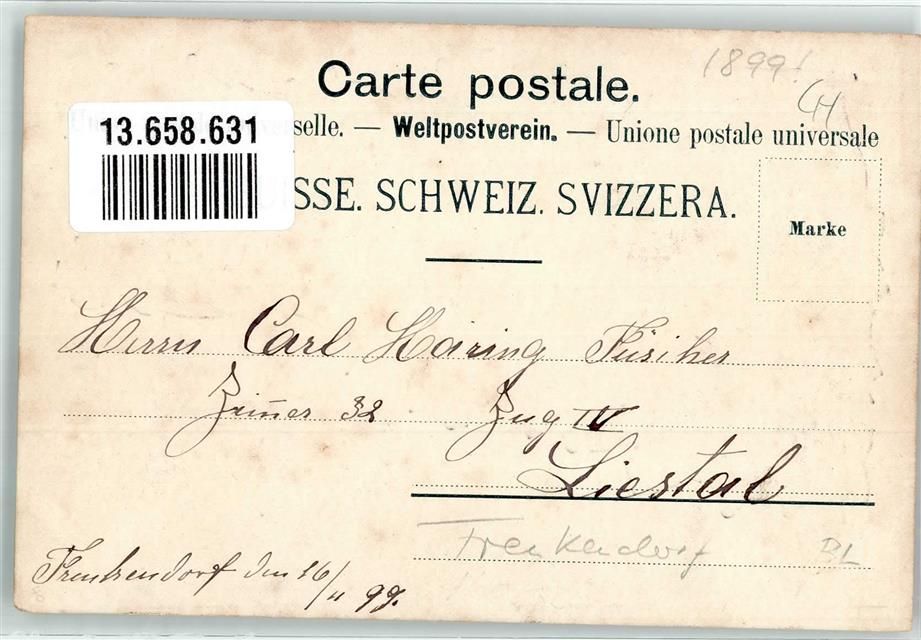 1899!
CH
Carte postale.
13.658.631
selle. — Weltpostverein. — Unione postale universale
ISSE. SCHWEIZ. SVIZZERA.
Marke
Herrn Carl Häring Füsilier
Zim̄er 32 Zug IV
Liestal
Frenkendorf BL
Frenkendorf den 16/4 99.